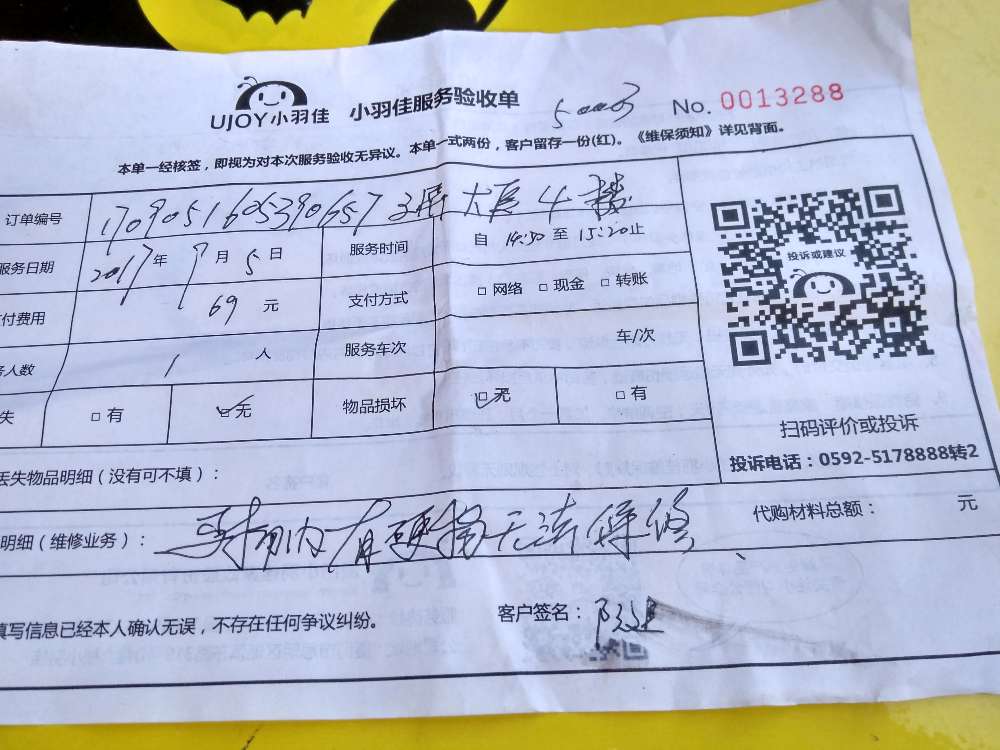 UJOY小羽佳 小羽佳服务验收单 No. 0013288
本单一经核签，即视为对本次服务验收无异议。本单一式两份，客户留存一份(红)。《维保须知》详见背面。
订单编号 1709051605390657 4楼
服务日期 2017年9月5日 服务时间 自 14:30 至 15:20止
付费用 69 元 支付方式 □网络 □现金 □转账
务人数 1 人 服务车次 车/次
失 □有 □无 物品损坏 □无 □有
投诉或建议
扫码评价或投诉
投诉电话：0592-5178888转2
丢失物品明细（没有可不填）：
明细（维修业务）： 内有硬 无法保修
代购材料总额： 元
填写信息已经本人确认无误，不存在任何争议纠纷。 客户签名：